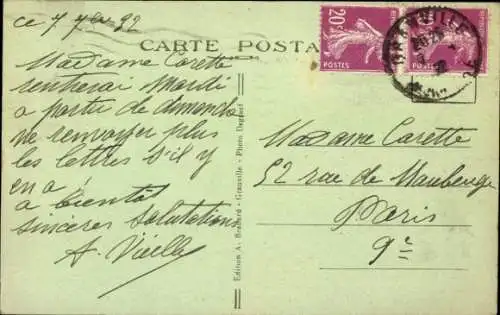 ce 7 7bre 32
CARTE POSTA
Madame Carette
rentrerai Mardi
a partir de dimanche
ne renvoyer plus
les lettres s'il y
en a !
a bientôt
sincères salutations
A. Vielle
Edition A. - Granville - Photo
20c
POSTES
POSTES
GRANVILLE
Madame Carette
52 rue de Maubeuge
Paris
9e